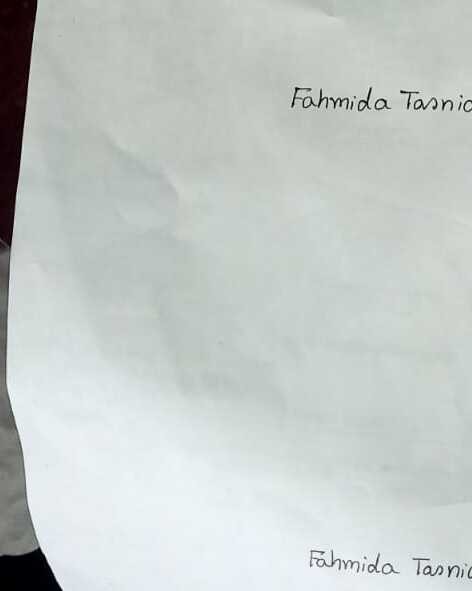 Fahmida Tasnia
Fahmida Tasnia